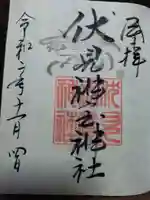 奉拝
伏見神宝神社
令和二年十一月四日